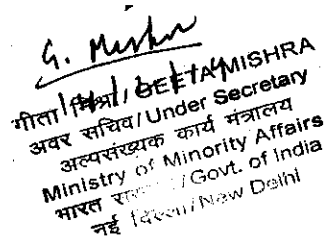 G. Mishra
गीता मिश्रा/GEETA MISHRA
अवर सचिव/Under Secretary
अल्पसंख्यक कार्य मंत्रालय
Ministry of Minority Affairs
भारत /Govt. of India
नई /New Delhi